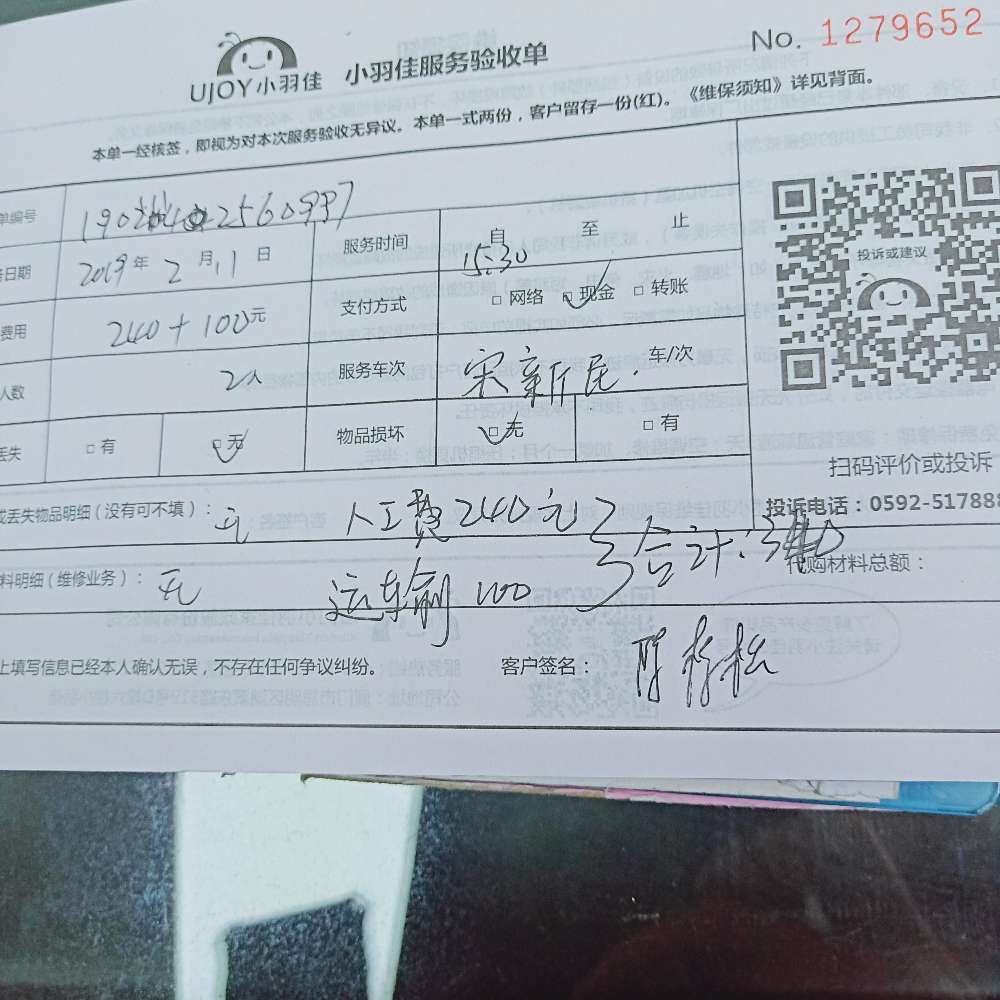 No. 1279652
UJOY小羽佳 小羽佳服务验收单
本单一经核签，即视为对本次服务验收无异议。本单一式两份，客户留存一份(红)。《维保须知》详见背面。
单编号
日期 2019年 2月11日 服务时间 自 15:30 至 止
费用 240+100元 支付方式 □网络 □现金 □转账
人数 2人 服务车次 车/次
丢失 □有 □无 物品损坏 □无 □有
投诉或建议
扫码评价或投诉
投诉电话：0592-517888
或丢失物品明细（没有可不填）： 无 人工费240元
合计：
料明细（维修业务）： 无 运车 100 代购材料总额：
上填写信息已经本人确认无误，不存在任何争议纠纷。 客户签名：